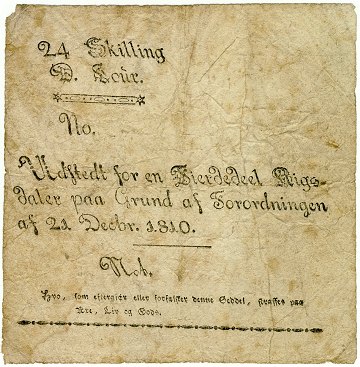 24 Skilling
D. Cour.
No.
Udstedt for en Fierdedeel Rigs-
daler paa Grund af Forordningen
af 21 Decbr. 1810.
Mob.
Hvo, som eftergiør eller forfalsker denne Seddel, straffes paa
Ære, Liv og Gods.